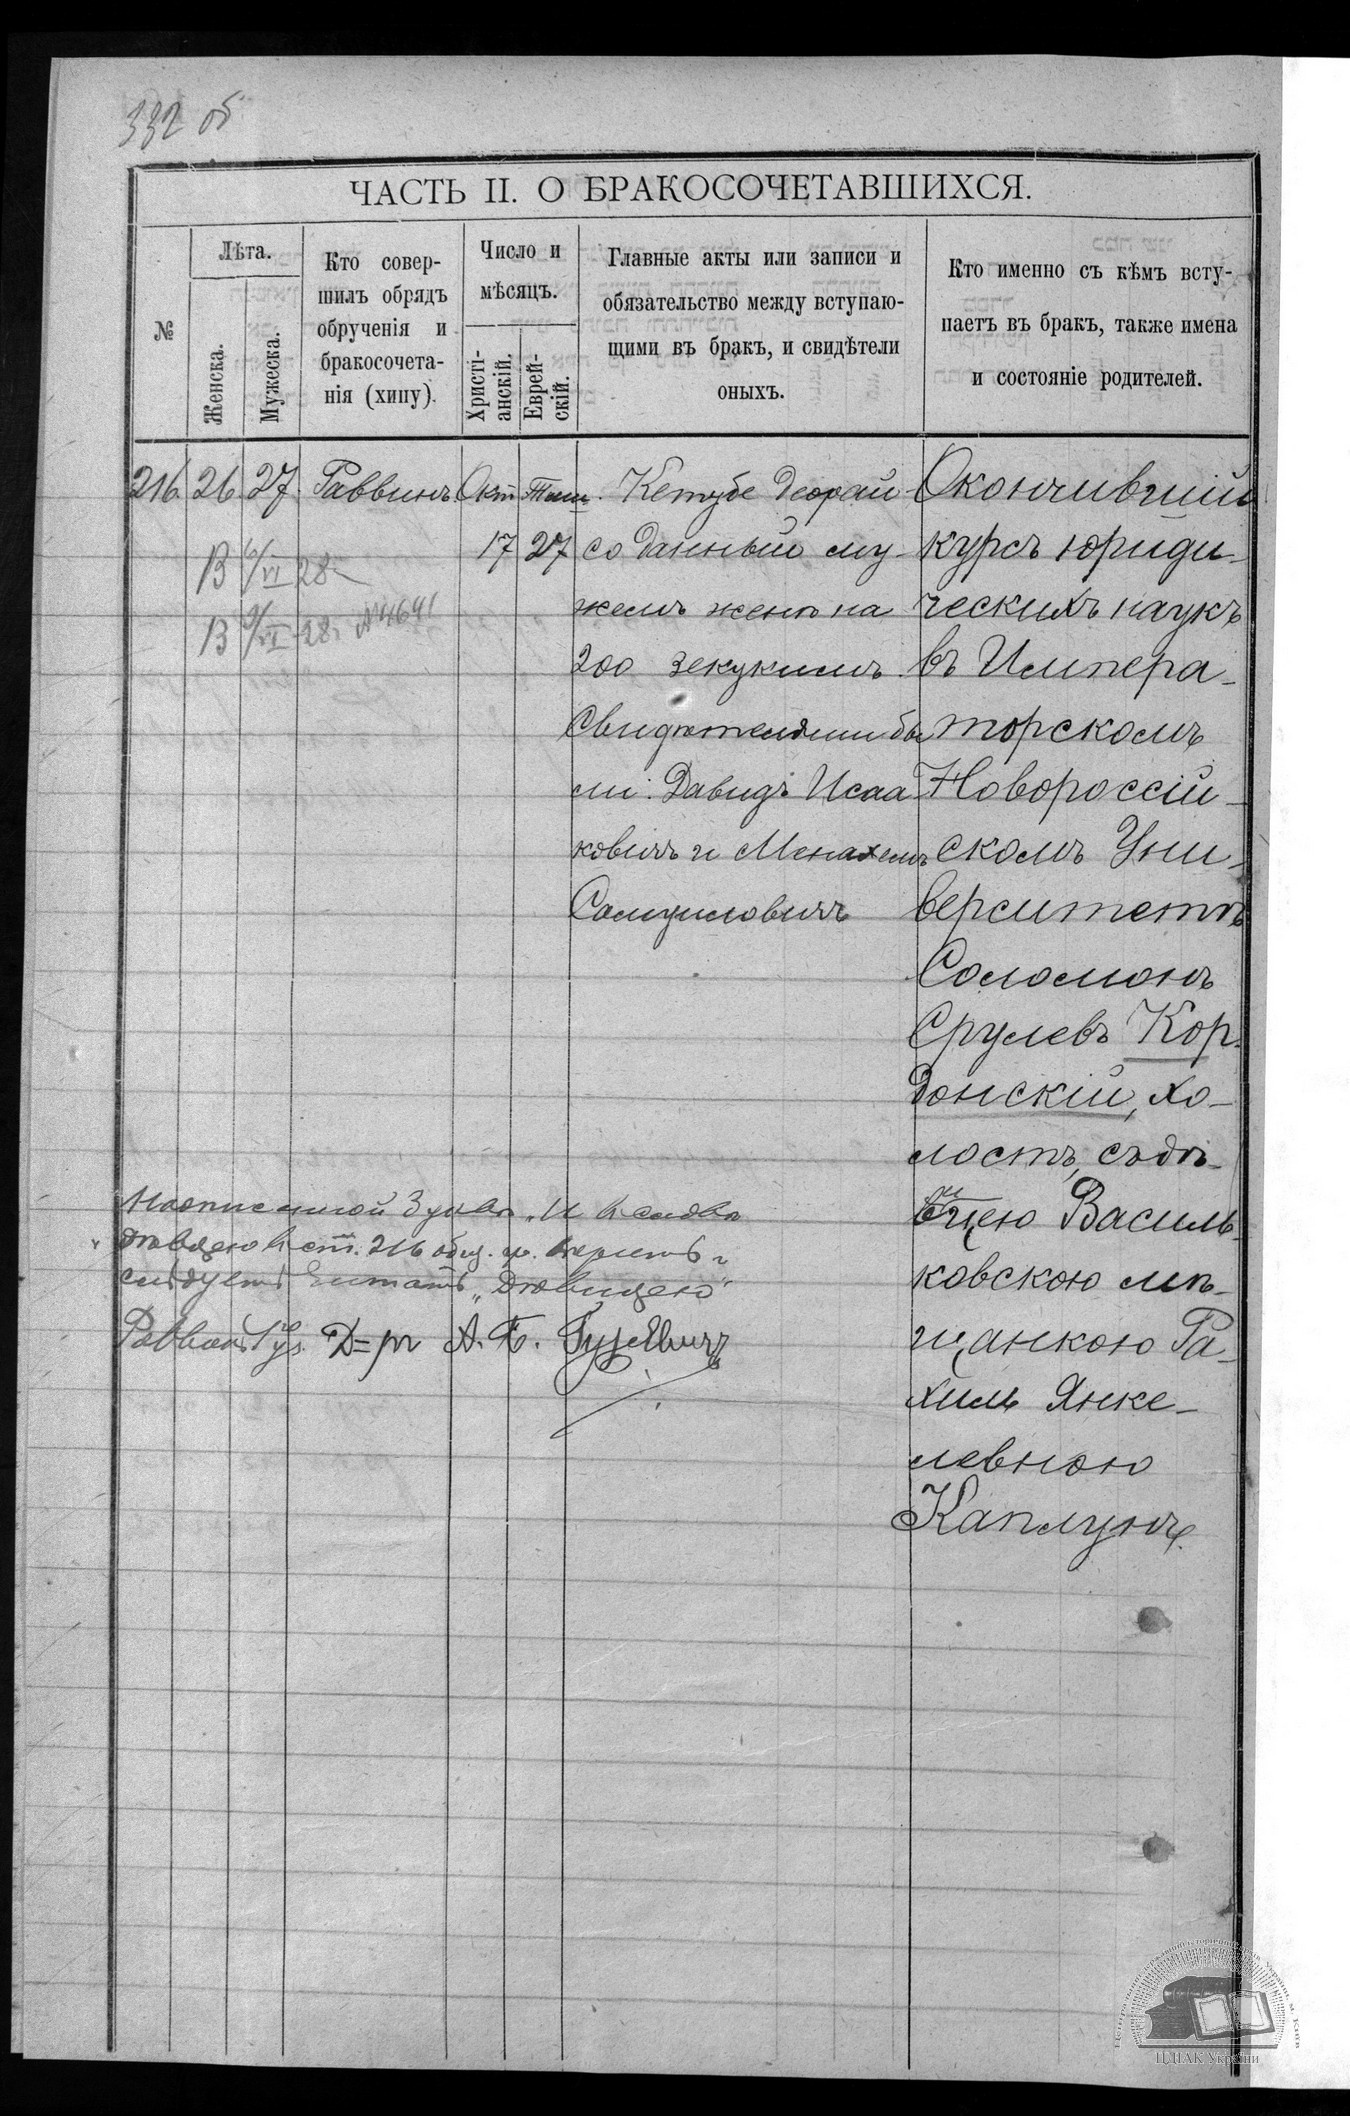 332 об
ЧАСТЬ II. О БРАКОСОЧЕТАВШИХСЯ.
№
Лѣта.
Женска.
Мужеска.
Кто совер-
шилъ обрядъ
обрученія и
бракосочета-
нія (хипу).
Число и
мѣсяцъ.
Христі-
анскій.
Еврей-
скій.
Главные акты или записи и
обязательство между вступаю-
щими въ бракъ, и свидѣтели
оныхъ.
Кто именно съ кѣмъ всту-
паетъ въ бракъ, также имена
и состояніе родителей.
216 26 27 Раввинъ Окт Тиш
17 27
В 6/VI 28
В 9/VI 28 № 4641
Кетубе деорай
со данный му
жемъ женѣ на
200 зекукимъ.
Свидѣтелями бы
ли: Давидъ Исаа
ковичъ и Менахемъ
Самуиловичъ
Окончившій
курсъ юриди-
ческихъ наукъ
въ Импера-
торскомъ
Новороссій-
скомъ Уни-
верситетѣ
Соломонъ
Срулевъ Кор-
донскій, хо-
лостъ, съ дѣ-
вицею Василь-
ковскою мѣ-
щанкою Ра-
хиль Янке-
левною
Каплунъ.
Надписанной
ст. 216
слѣдуетъ читать „дѣвицею"
Раввинъ Д-ръ А. Б. Гуревичъ
ЦДІАК України